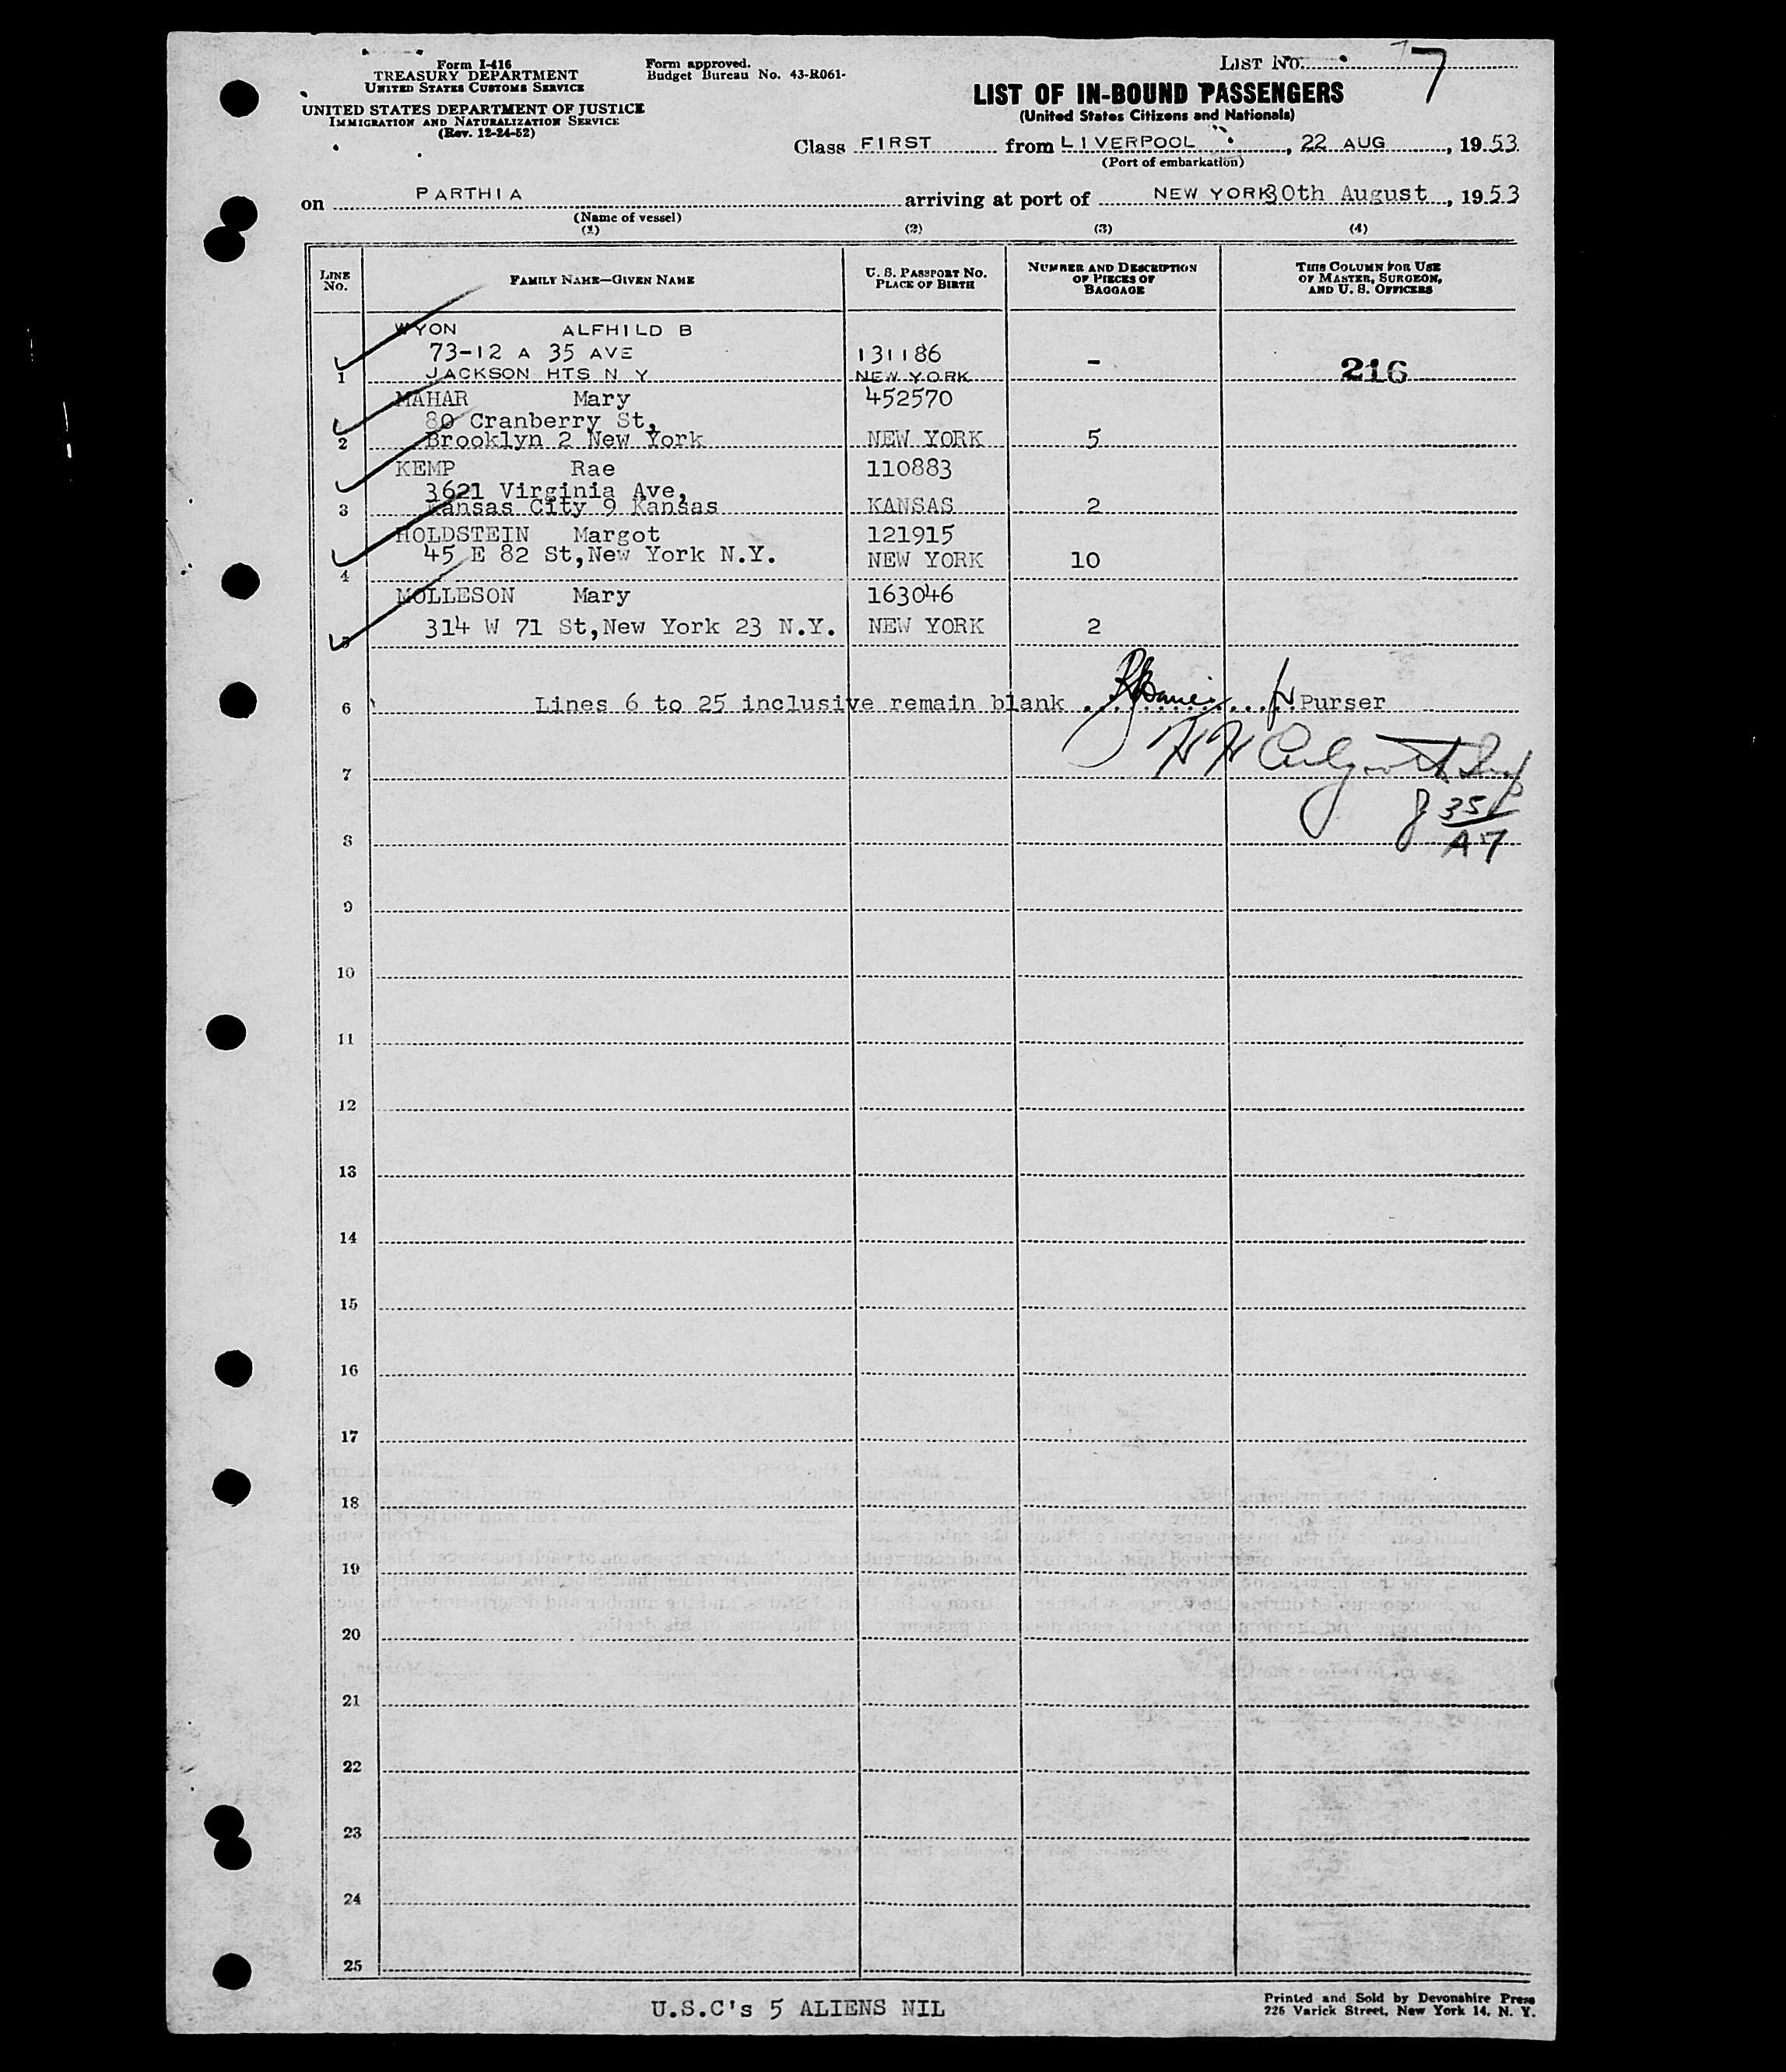 Form I-416
TREASURY DEPARTMENT
UNITED STATES CUSTOMS SERVICE
UNITED STATES DEPARTMENT OF JUSTICE
IMMIGRATION AND NATURALIZATION SERVICE
(Rev. 12-24-52)
Form approved.
Budget Bureau No. 43-R061-
LIST NO. 7
LIST OF IN-BOUND PASSENGERS
(United States Citizens and Nationals)
Class FIRST from LIVERPOOL, 22 AUG, 1953
(Port of embarkation)
on PARTHIA arriving at port of NEW YORK 30th August, 1953
(Name of vessel)
(1) (2) (3) (4)
LINE NO.
FAMILY NAME—GIVEN NAME
U. S. PASSPORT NO.
PLACE OF BIRTH
NUMBER AND DESCRIPTION
OF PIECES OF
BAGGAGE
THIS COLUMN FOR USE
OF MASTER, SURGEON,
AND U. S. OFFICERS
WYON ALFHILD B
73-12 A 35 AVE 131186 -
1 JACKSON HTS N Y NEW YORK 216
MAHAR Mary 452570
80 Cranberry St,
2 Brooklyn 2 New York NEW YORK 5
KEMP Rae 110883
3621 Virginia Ave,
3 Kansas City 9 Kansas KANSAS 2
HOLDSTEIN Margot 121915
45 E 82 St,New York N.Y. NEW YORK 10
4
MOLLESON Mary 163046
314 W 71 St,New York 23 N.Y. NEW YORK 2
5
6 Lines 6 to 25 inclusive remain blank Purser
7
35
8 A7
9
10
11
12
13
14
15
16
17
18
19
20
21
22
23
24
25
U.S.C's 5 ALIENS NIL
Printed and Sold by Devonshire Press
225 Varick Street, New York 14, N. Y.